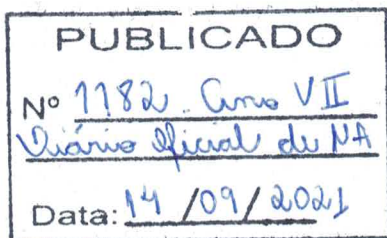 PUBLICADO
Nº 1182 Ano VII
Diário Oficial de NA
Data: 14 /09/ 2021